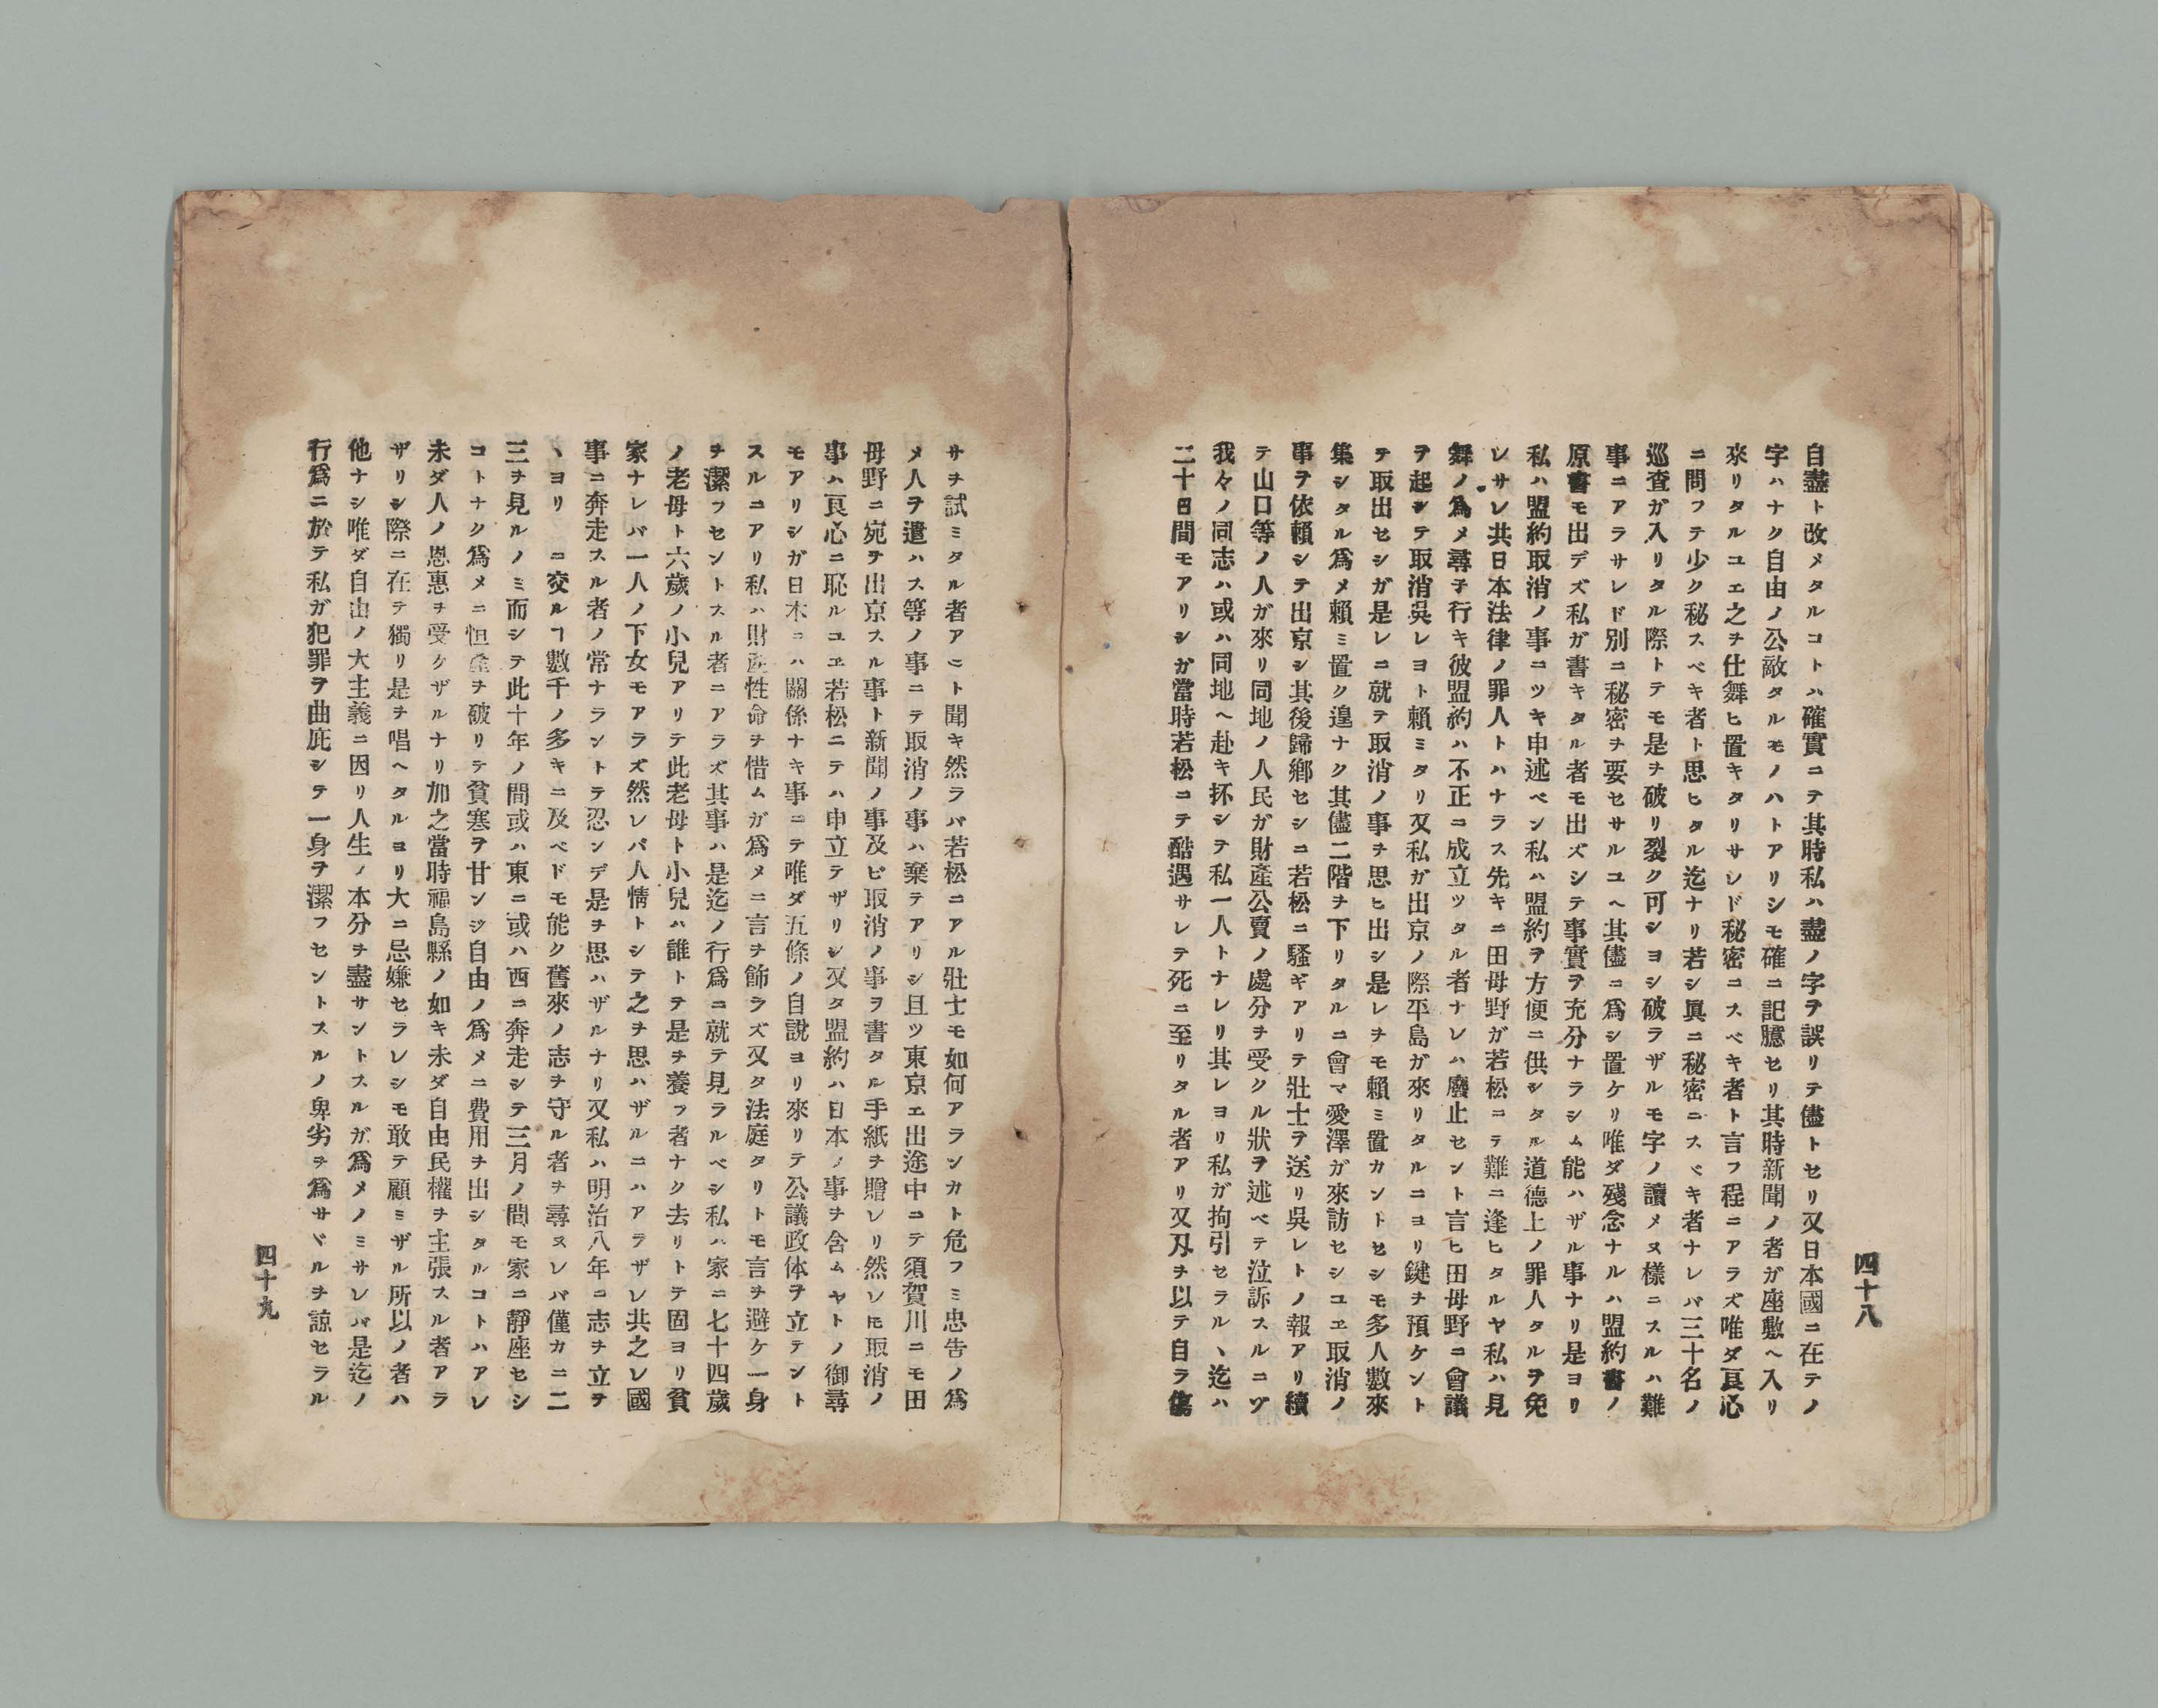 四十八
自盡ト改メタルコトハ確實ニテ其時私ハ盡ノ字ヲ誤リテ儘トセリ又日本國ニ在テノ
字ハナク自由ノ公敵タルモノハトアリシモ確ニ記臆セリ其時新聞ノ者ガ座敷ヘ入リ
來リタルユエ之ヲ仕舞ヒ置キタリサレド秘密ニスベキ者ト言フ程ニアラズ唯ダ良心
ニ問フテ少ク秘スベキ者ト思ヒタル迄ナリ若シ眞ニ秘密ニスベキ者ナレバ三十名ノ
巡査ガ入リタル際トテモ是ヲ破リ裂ク可シヨシ破ラザルモ字ノ讀メヌ樣ニスルハ難
事ニアラサレド別ニ秘密ヲ要セサルユヘ其儘ニ爲シ置ケリ唯ダ殘念ナルハ盟約書ノ
原書モ出デズ私ガ書キタル者モ出ズシテ事實ヲ充分ナラシム能ハザル事ナリ是ヨリ
私ハ盟約取消ノ事ニツキ申述ベン私ハ盟約ヲ方便ニ供シタル道德上ノ罪人タルヲ免
レサレ共日本法律ノ罪人トハナラス先キニ田母野ガ若松ニテ難ニ逢ヒタルヤ私ハ見
舞ノ爲メ尋子行キ彼盟約ハ不正ニ成立ツタル者ナレハ廢止セント言ヒ田母野ニ會議
ヲ起シテ取消呉レヨト賴ミタリ又私ガ出京ノ際平島ガ來リタルニヨリ鍵ヲ預ケント
テ取出セシガ是レニ就テ取消ノ事ヲ思ヒ出シ是レヲモ賴ミ置カントセシモ多人數來
集シタル爲メ賴ミ置ク遑ナク其儘二階ヲ下リタルニ會マ愛澤ガ來訪セシユヱ取消ノ
事ヲ依賴シテ出京シ其後歸鄕セシニ若松ニ騷ギアリテ壯士ヲ送リ呉レトノ報アリ續
テ山口等ノ人ガ來リ同地ノ人民ガ財產公賣ノ處分ヲ受クル狀ヲ述ベテ泣訴スルニヅ
我々ノ同志ハ或ハ同地ヘ赴キ抔シテ私一人トナレリ其レヨリ私ガ拘引セラルヽ迄ハ
二十日間モアリシガ當時若松ニテ酷遇サレテ死ニ至リタル者アリ又刄ヲ以テ自ラ傷
サヲ試ミタル者アニト聞キ然ラバ若松ニアル壯士モ如何アランカト危フミ忠告ノ爲
メ人ヲ遣ハス等ノ事ニテ取消ノ事ハ棄テアリシ且ツ東京エ出途中ニテ須賀川ニモ田
母野ニ宛ヲ出京スル事ト新聞ノ事及ビ取消ノ事ヲ書タル手紙ヲ贈レリ然レ𪜈取消ノ
事ハ良心ニ恥ルユヱ若松ニテハ申立テザリシ又タ盟約ハ日本ノ事ヲ含ムヤトノ御尋
モアリシガ日本ニハ關係ナキ事ニテ唯ダ五條ノ自說ヨリ來リテ公議政体ヲ立テント
スルニアリ私ハ財產性命ヲ惜ムガ爲メニ言ヲ飾ラズ又タ法庭タリトモ言ヲ避ケ一身
ヲ潔フセントスル者ニアラズ其事ハ是迄ノ行爲ニ就テ見ラルベシ私ハ家ニ七十四歲
ノ老母ト六歲ノ小兒アリテ此老母ト小兒ハ誰トテ是ヲ養フ者ナク去リトテ固ヨリ貧
家ナレバ一人ノ下女モアラズ然レバ人情トシテ之ヲ思ハザルニハアラザレ共之レ國
事ニ奔走スル者ノ常ナラントテ忍ンデ是ヲ思ハザルナリ又私ハ明治八年ニ志ヲ立ヲ
ヽヨリ　ニ交ルヿ數千ノ多キニ及ベドモ能ク舊來ノ志ヲ守ル者ヲ尋ヌレバ僅カニ二
三ヲ見ルノミ而シテ此十年ノ間或ハ東ニ或ハ西ニ奔走シテ三月ノ間モ家ニ靜座セシ
コトナク爲メニ恒產ヲ破リテ貧寒ヲ甘ンジ自由ノ爲メニ費用ヲ出シタルコトハアレ
未ダ人ノ恩惠ヲ受ケザルナリ加之當時福島縣ノ如キ未ダ自由民權ヲ主張スル者アラ
ザリシ際ニ在テ獨リ是ヲ唱ヘタルヨリ大ニ忌嫌セラレシモ敢テ顧ミザル所以ノ者ハ
他ナシ唯ダ自由ノ大主義ニ因リ人生ノ本分ヲ盡サントスルガ爲メノミサレバ是迄ノ
行爲ニ於テ私ガ犯罪ヲ曲庇シテ一身ヲ潔フセントスルノ卑劣ヲ爲サヾルヲ諒セラル
四十九